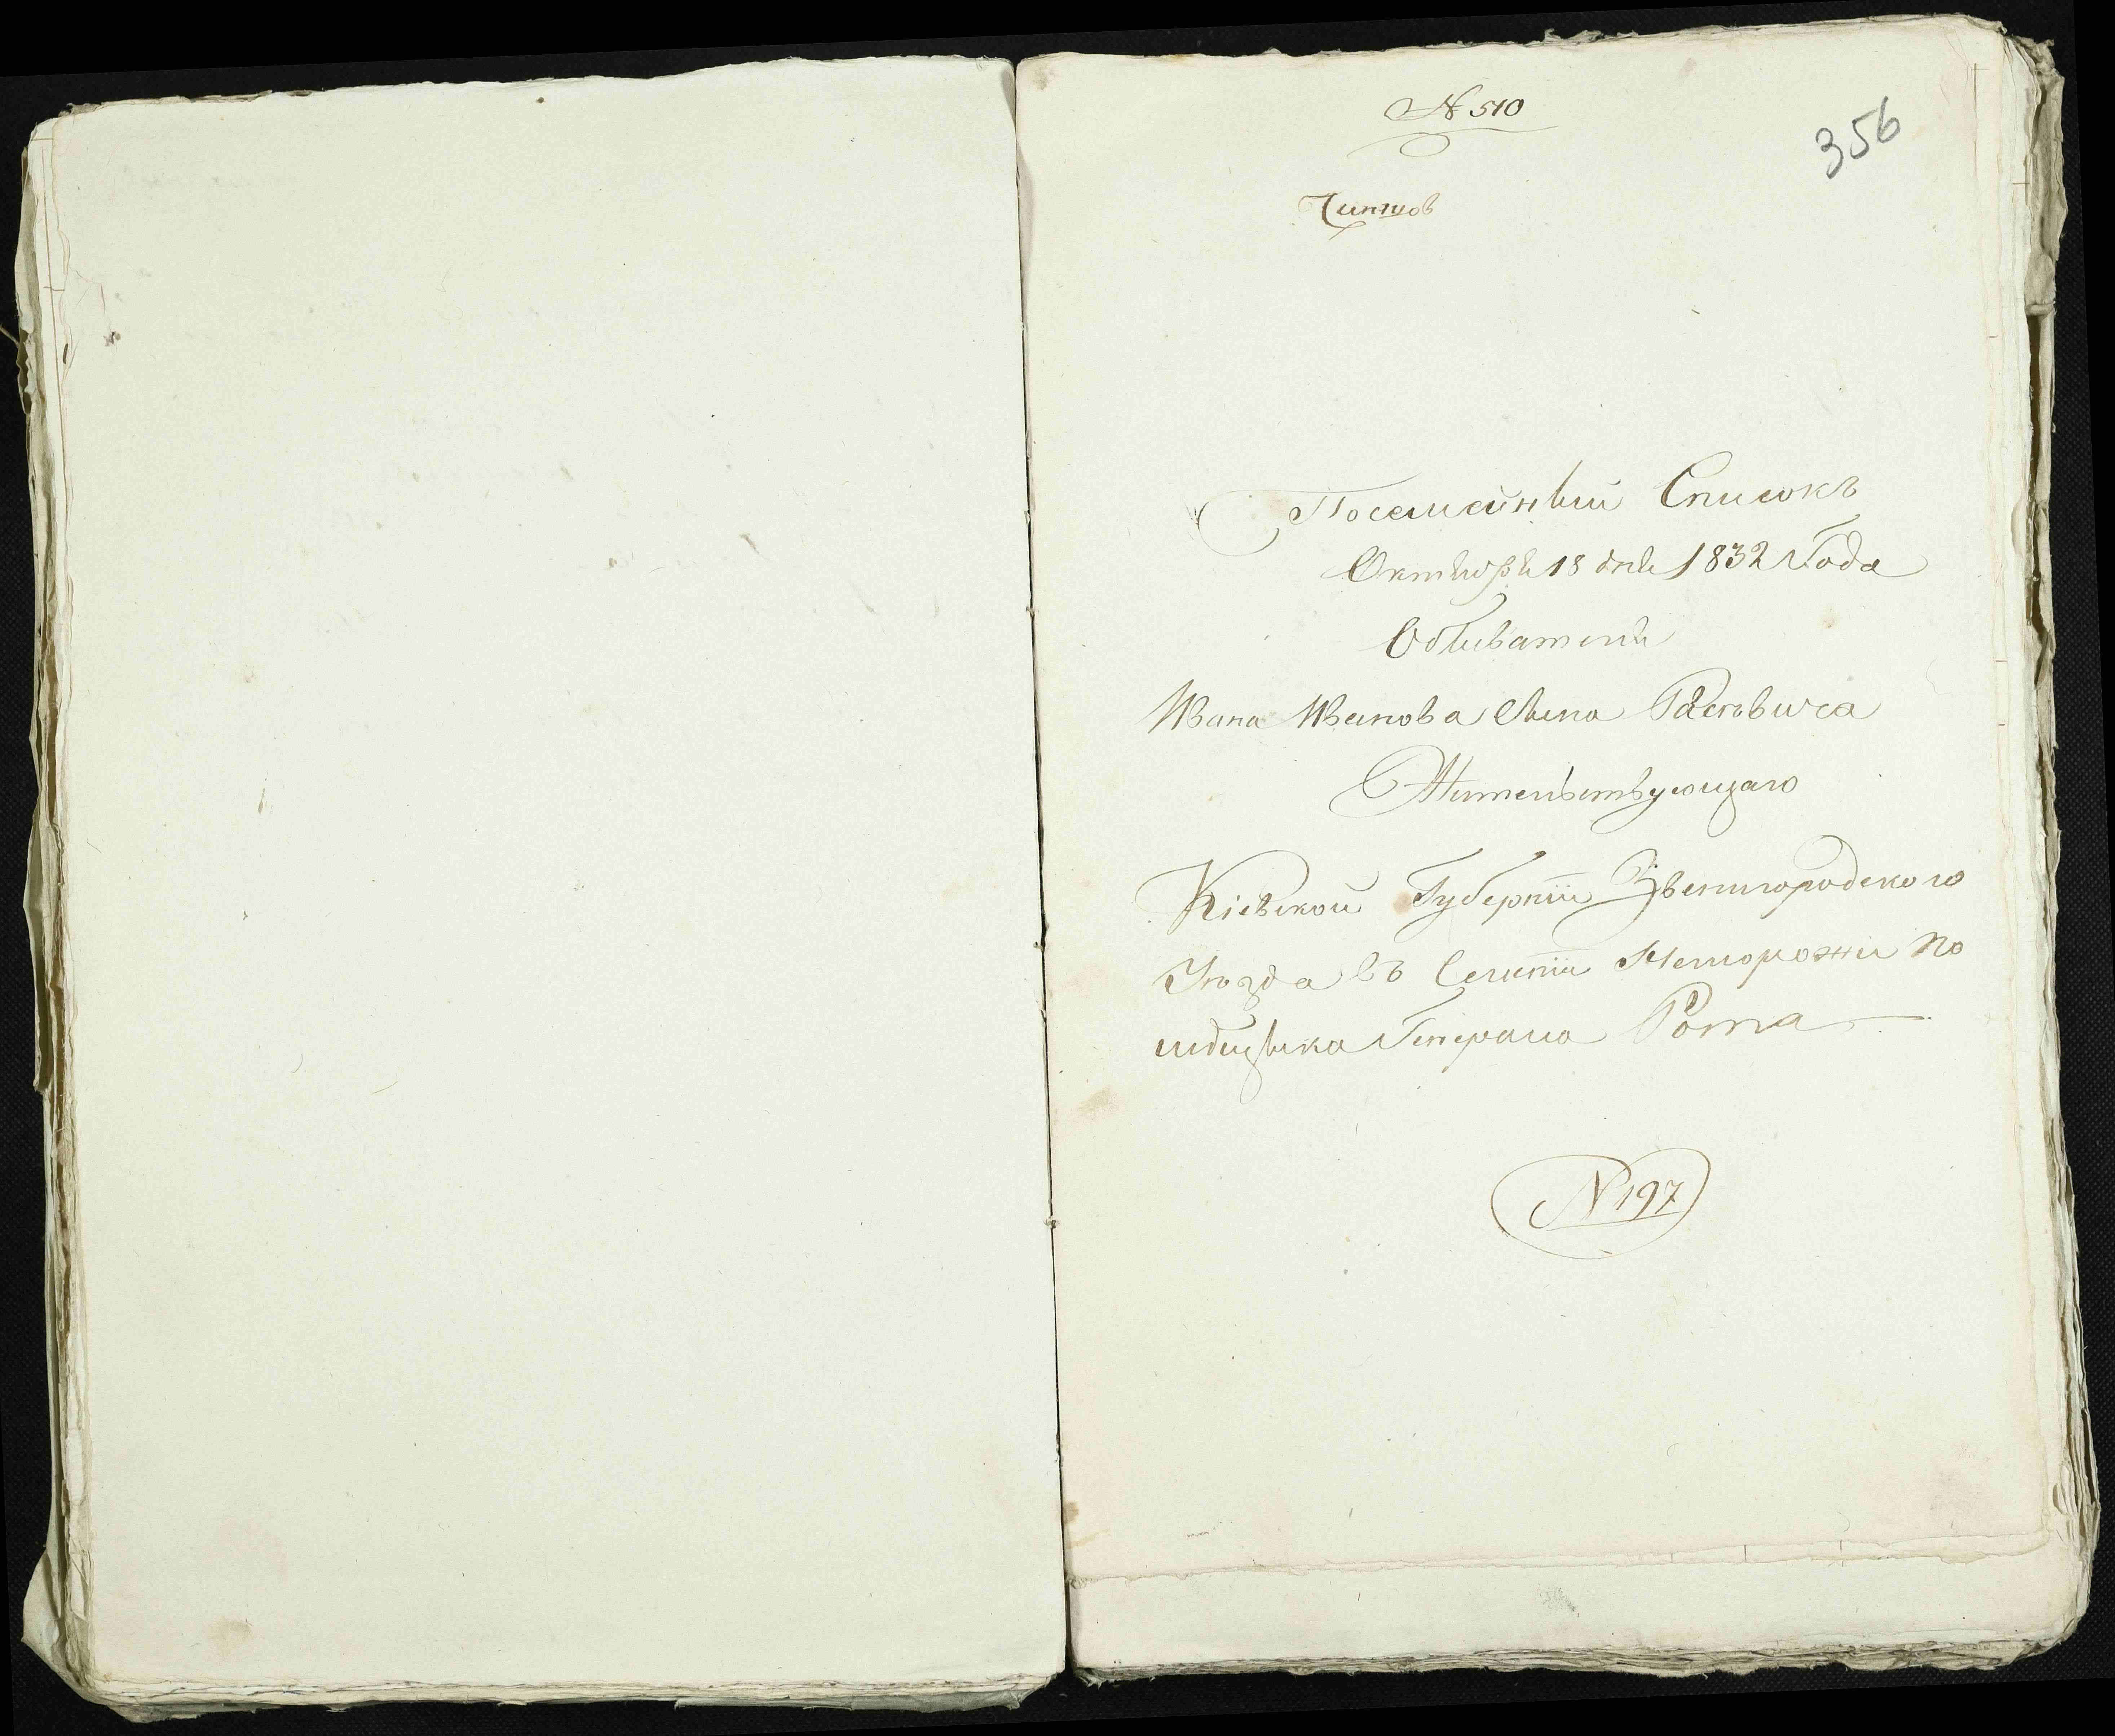 N 510
356
Чиншов
Посемейный Списокъ
Октября 18 дня 1832 Года
Обывателя
Ивана Иванова Сына
Жительствующаго
Кіевской Губерніи Звенигородского
Уѣзда въ Селеніи Неморожи по
мѣщыка Генерала Рота
N 197